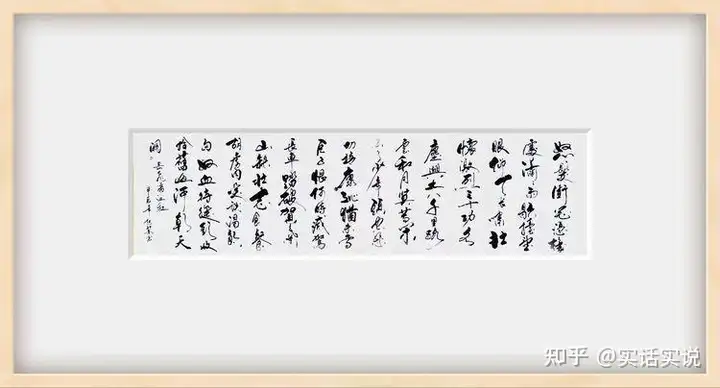 怒髮衝冠憑欄
處瀟瀟雨歇抬望
眼仰天長嘯壯
懷激烈三十功名
塵與土八千里路
雲和月莫等閒
白了少年頭空悲
切靖康恥猶未雪
臣子恨何時滅駕
長車踏破賀蘭
山缺壯志飢餐
胡虜肉笑談渴飲
匈奴血待從頭收
拾舊山河朝天
闕 岳飛滿江紅
知乎 @实话实说